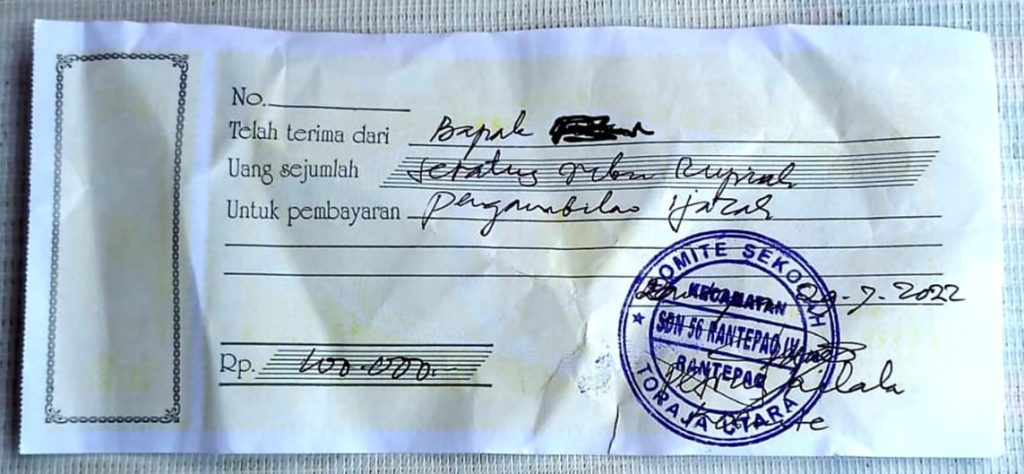 No.
Telah terima dari Bapak
Uang sejumlah Seratus ribu Rupiah
Untuk pembayaran Pengambilan Ijazah
09-7-2022
Rp. 100.000.-
KOMITE SEKOLAH
KECAMATAN
SDN 56 RANTEPAO IV
RANTEPAO
TORAJA UTARA
Komite